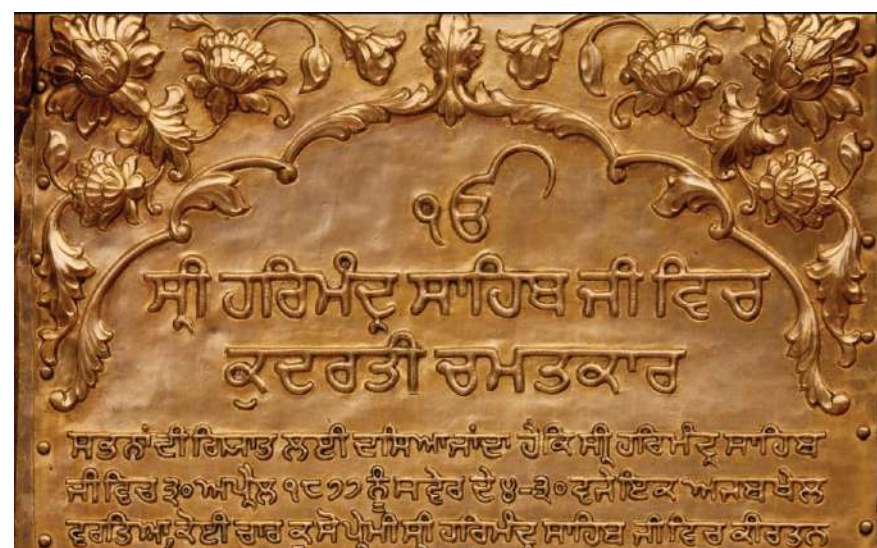 ੴ
ਸ੍ਰੀ ਹਰਿਮੰਦ੍ਰ ਸਾਹਿਬ ਜੀ ਵਿਚ
ਕੁਦਰਤੀ ਚਮਤਕਾਰ
ਸਭਨਾਂ ਦੀ ਗਿਆਤ ਲਈ ਦਸਿਆ ਜਾਂਦਾ ਹੈ ਕਿ ਸ੍ਰੀ ਹਰਿਮੰਦ੍ਰ ਸਾਹਿਬ
ਜੀ ਵਿਚ ੩੦ ਅਪ੍ਰੈਲ ੧੮੭੭ ਨੂੰ ਸਵੇਰ ਦੇ ੪-੩੦ ਵਜੇ ਇਕ ਅਜਬ ਖੇਲ
ਵਰਤਿਆ, ਕੋਈ ਚਾਰ ਕੁ ਸੌ ਪ੍ਰੇਮੀ ਸ੍ਰੀ ਹਰਿਮੰਦ੍ਰ ਸਾਹਿਬ ਜੀ ਵਿਚ ਕੀਰਤਨ